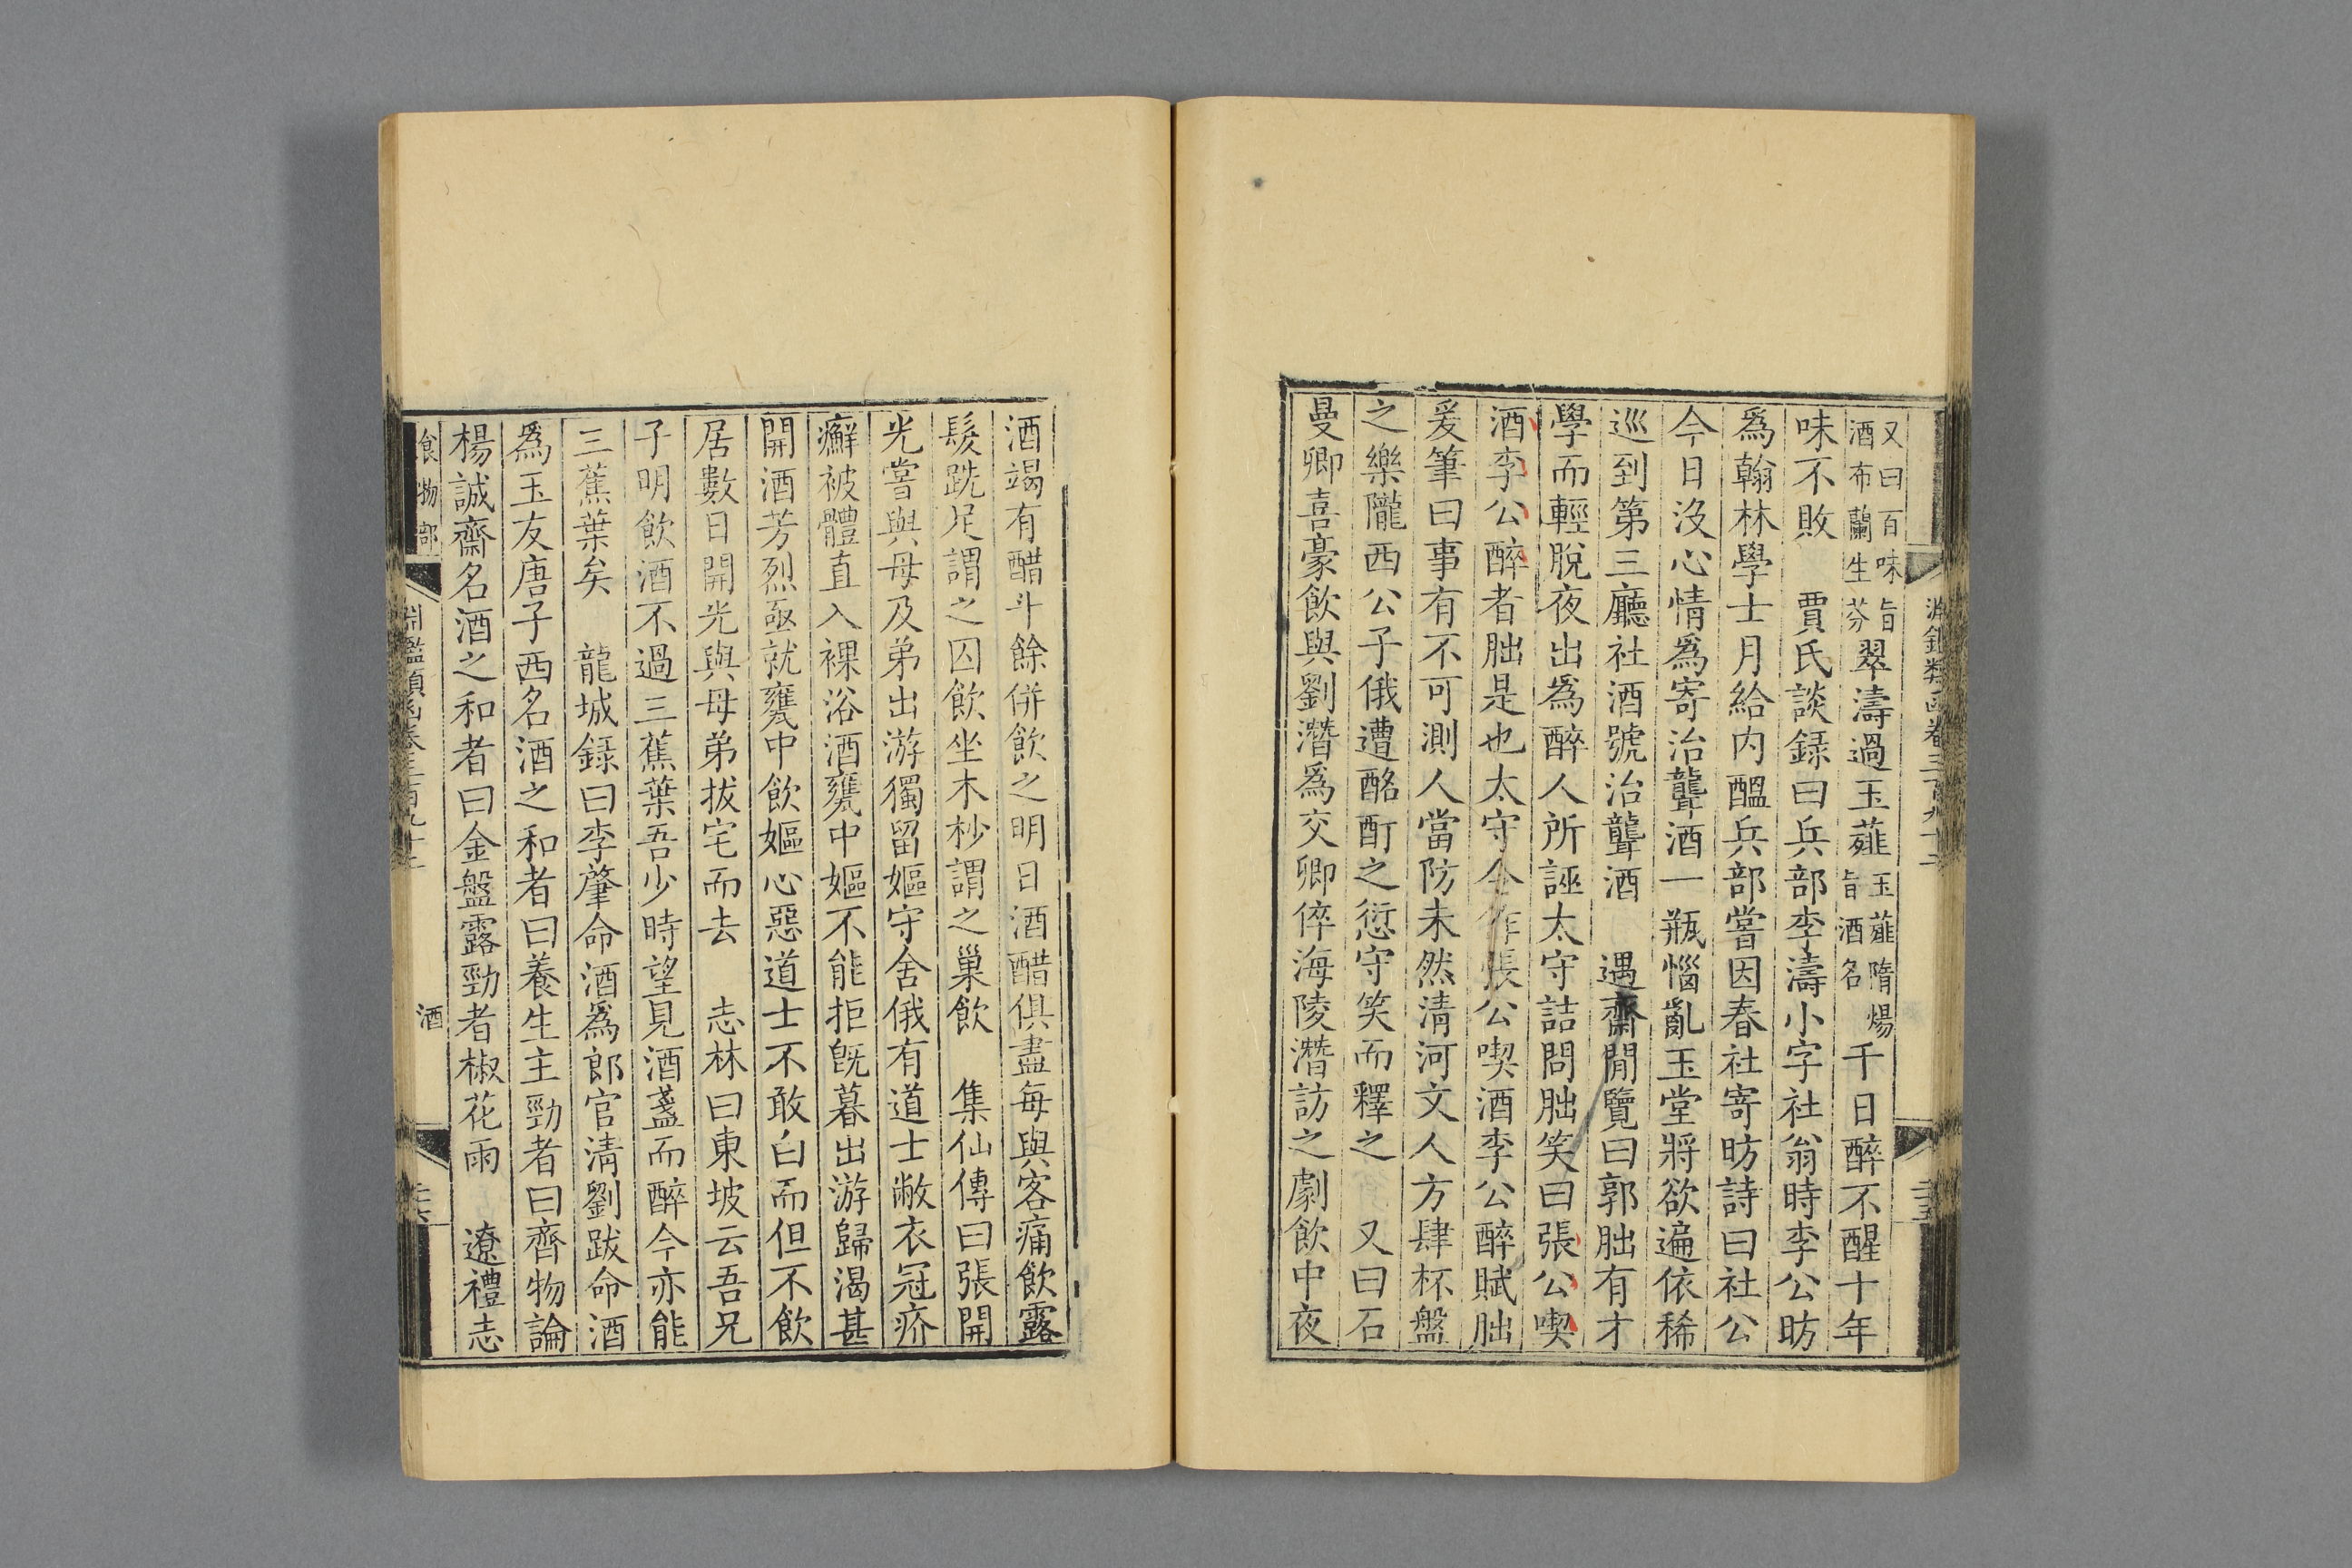 淵鑑類函卷三百九十二
三五
又曰百味旨
酒布蘭生芬
翠濤過玉薤
玉薤隋煬
旨酒名
千日醉不醒十年
味不敗　賈氏談録曰兵部李濤小字社翁時李公昉
爲翰林學士月給内醞兵部嘗因春社寄昉詩曰社公
今日沒心情爲寄治聾酒一瓶惱亂玉堂將欲遍依稀
巡到第三廳社酒號治聾酒　遇齋閒覽曰郭朏有才
學而輕脫夜出爲醉人所誣太守詰問朏笑曰張公喫
酒李公醉者朏是也太守令作張公喫酒李公醉賦朏
爰筆曰事有不可測人當防未然清河文人方肆杯盤
之樂隴西公子俄遭酩酊之愆守笑而釋之　又曰石
曼卿喜豪飲與劉潛爲交卿倅海陵潛訪之劇飲中夜
酒竭有醋斗餘併飲之明日酒醋俱盡每與客痛飲露
髮跣足謂之囚飲坐木杪謂之巢飲　集仙傳曰張開
光嘗與母及弟出游獨留嫗守舍俄有道士敝衣冠疥
癬被體直入裸浴酒甕中嫗不能拒旣暮出游歸渴甚
開酒芳烈亟就甕中飲嫗心惡道士不敢白而但不飲
居數日開光與母弟拔宅而去　志林曰東坡云吾兄
子明飲酒不過三蕉葉吾少時望見酒盞而醉今亦能
三蕉葉矣　龍城録曰李肇命酒爲郎官清劉跋命酒
爲玉友唐子西名酒之和者曰養生主勁者曰齊物論
楊誠齋名酒之和者曰金盤露勁者椒花雨　遼禮志
食物部
淵鑑類函卷三百九十二
酒
三六